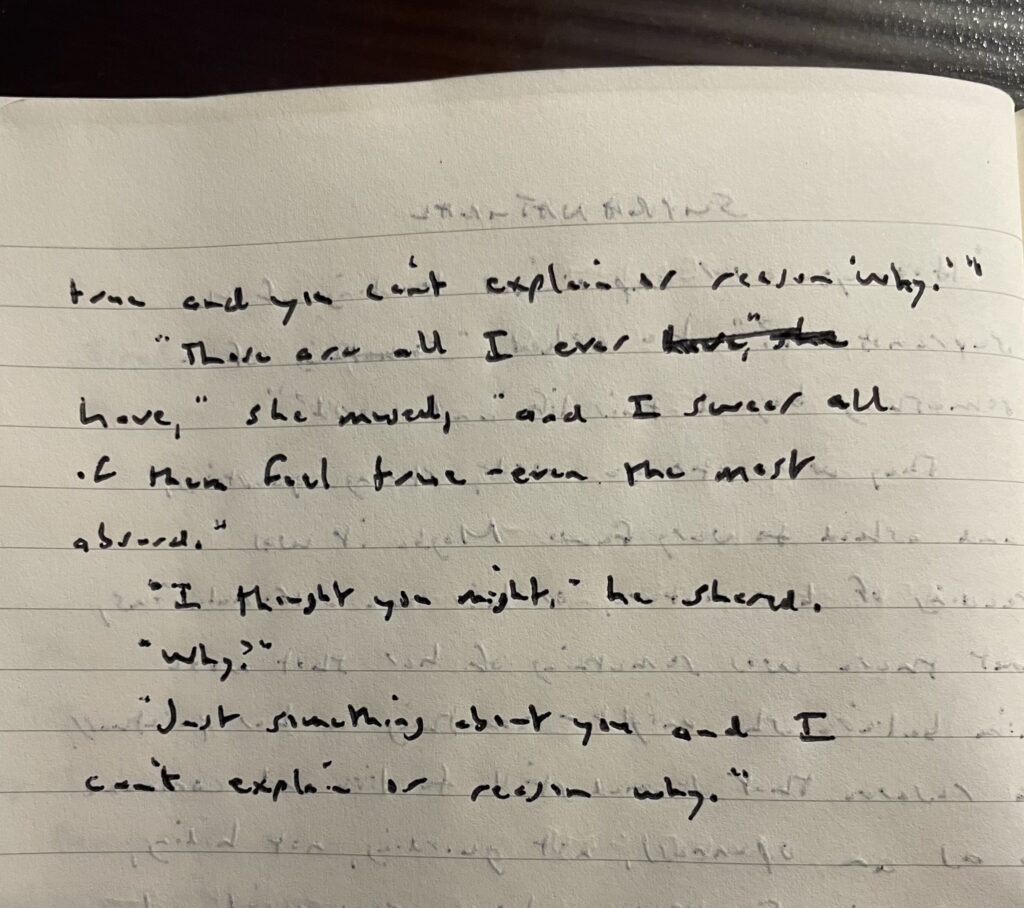 true and you can't explain or reason 'why.'"
"Those are all I ever have," she
have," she mused, "and I swear all
of them feel true - even the most
absurd."
"I thought you might," he shared.
"Why?"
"Just something about you and I
can't explain or reason why."